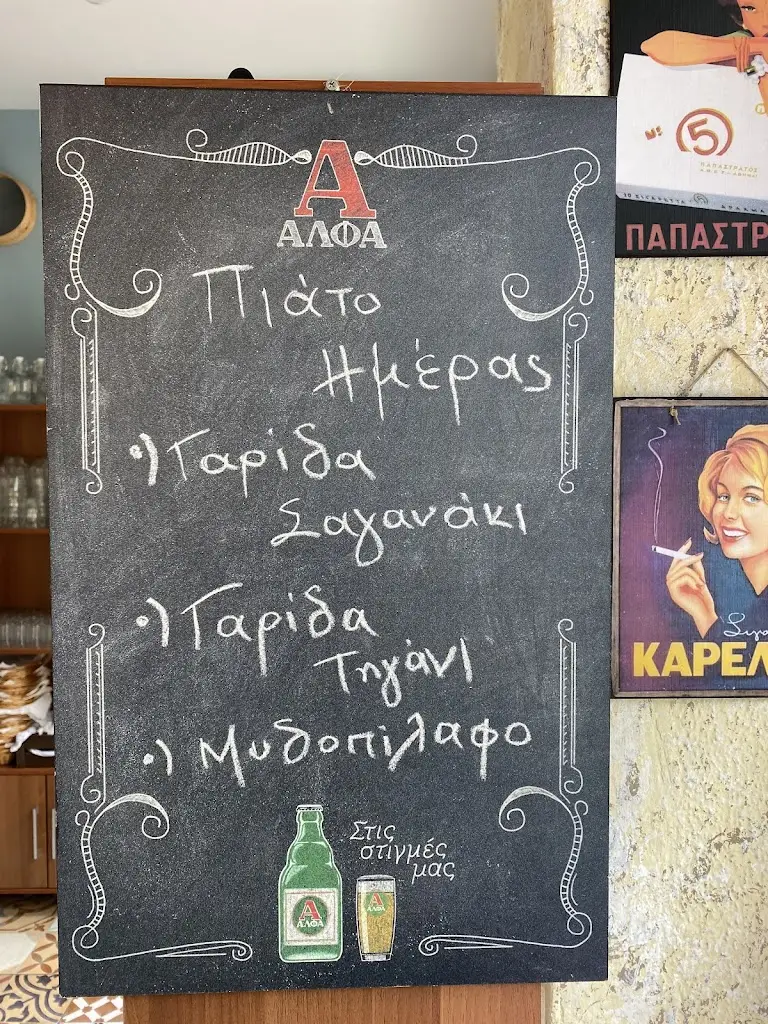 Α
ΑΛΦΑ
Πιάτο
Ημέρας
•) Γαρίδα
Σαγανάκι
•) Γαρίδα
Τηγάνι
•) Μυδοπίλαφο
Στις
στιγμές
μας
Α
ΑΛΦΑ
Α
ΑΛΦΑ
5
ΠΑΠΑΣΤΡΑΤΟΣ
ΠΑΠΑΣΤΡ
ΚΑΡΕΛ